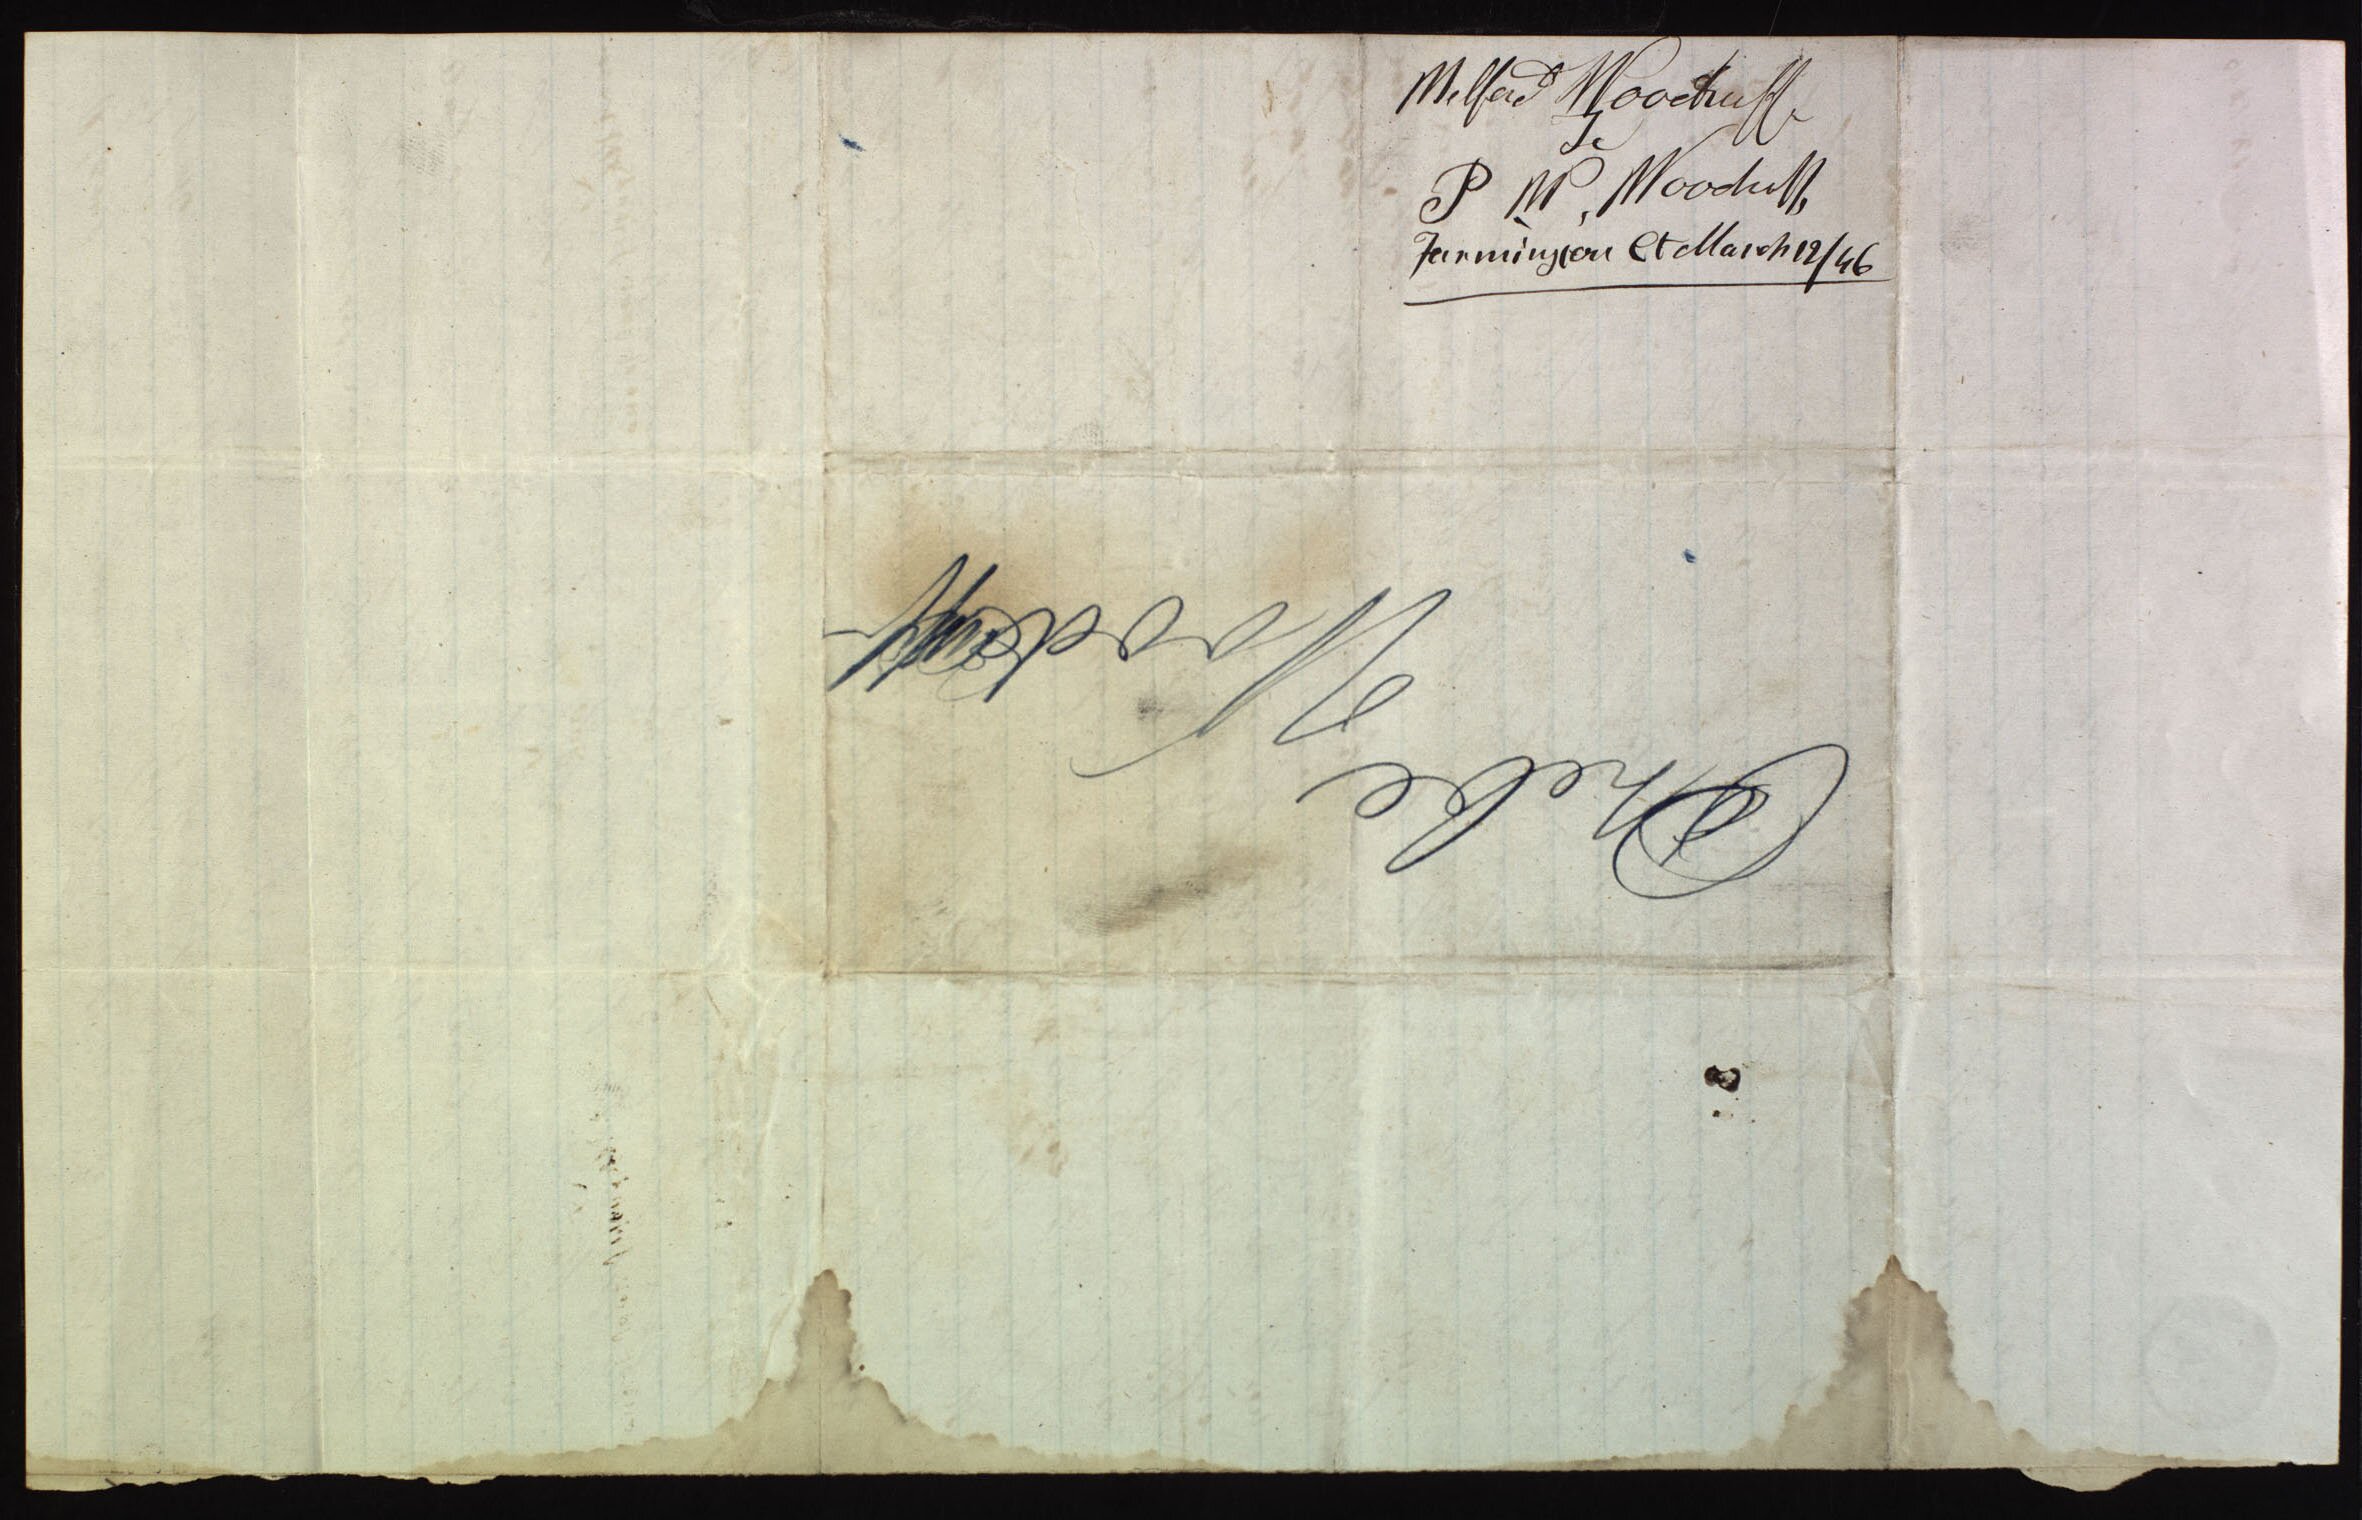 Wilford Woodruff
To
P W. Woodruff
Farmington Ct March 12/46
Phebe
Woodruff